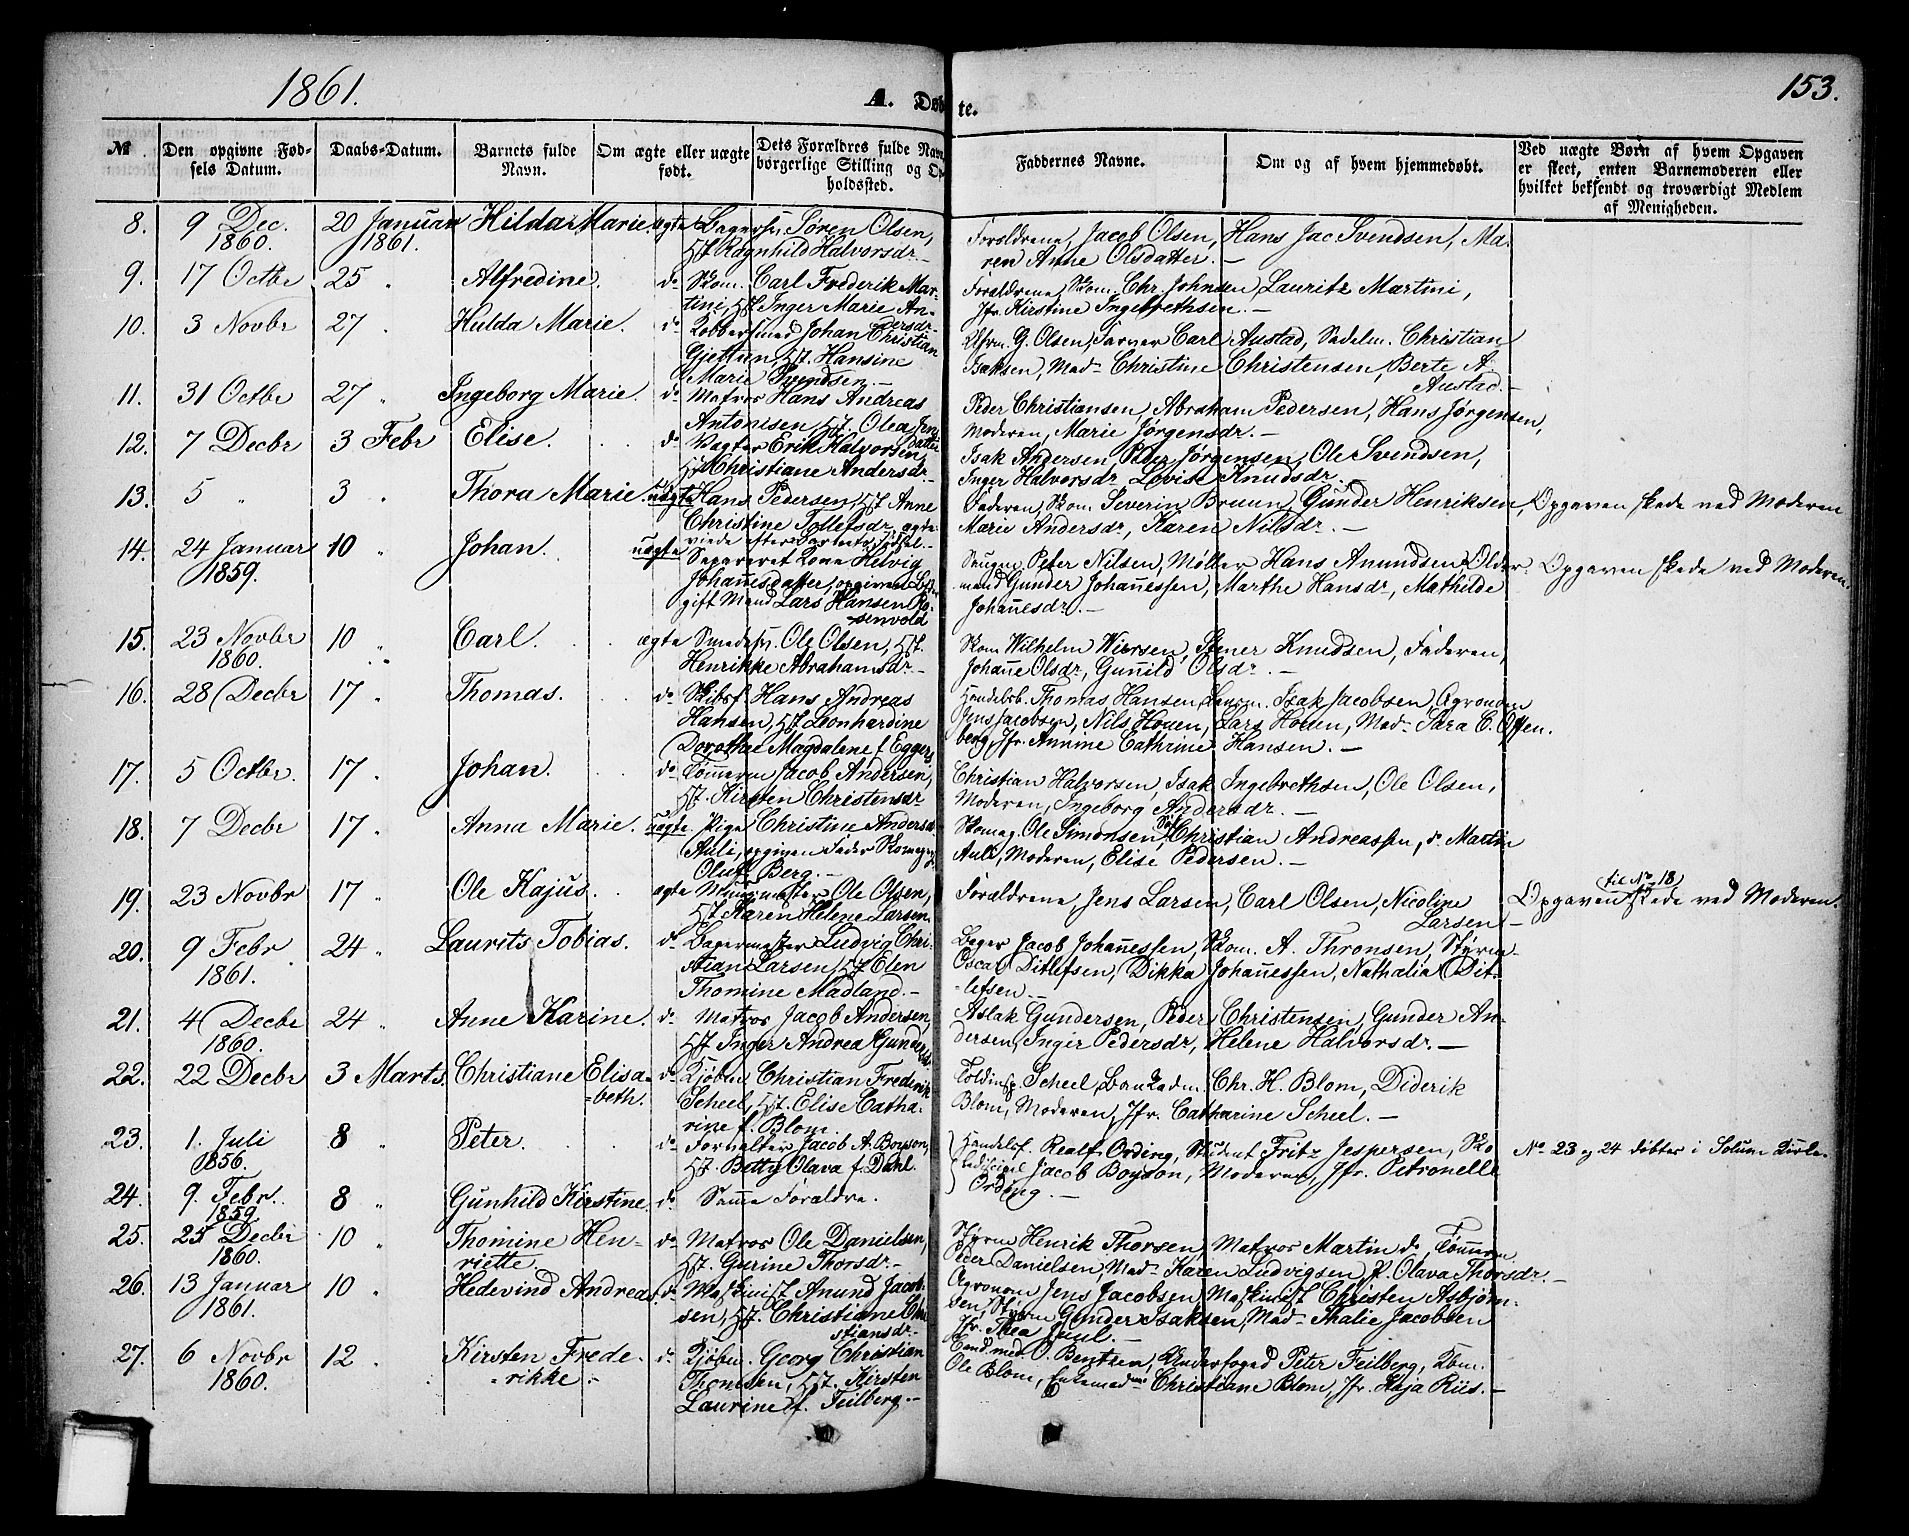 1861.
A. Døb te.
153.
No
Den opgivne Fød-
sels Datum.
Daabs-Datum.
Barnets fulde
Navn.
Om ægte eller uægte
født.
Dets Forældres fulde Navn,
borgerlige Stilling og Op-
holdssted.
Faddernes Navne.
Om og af hvem hjemmedøbt.
Ved uægte Børn af hvem Opgaven
er skeet, enten Barnemoderen eller
hvilket bekjendt og troværdigt Medlem
af Menigheden.
8. 9 Dec. 1860. 20 Januar 1861. Hilda Marie. ægte Bagersv. Søren Olsen,
H. Ragnhild Halvorsdr.
Forældrene, Jacob Olsen, Hans Jac Svendsen, Ma-
ren Anne Olsdatter. —
9. 17 Octbr 25 " Alfredine. do Skom. Carl Frederik Mar-
tini, H. Inger Marie An-
dersdr.
Forældrene, Skom. Chr. Johnsen, Lauritz Martini,
Jfr. Kirstine Ingebrethsen. —
10. 3 Novbr 27 " Hulda Marie. do Kobbersmed Johan Christian
Gjettun, H. Hansine
Marie Svendsen. —
G. Olsen, Farver Carl Austad, Sadelm. Christian
Isaksen, Mad. Christine Christensen, Berte A.
Austad. —
11. 31 Octbr 27 " Ingeborg Marie. do Matros Hans Andreas
Antonisen, H. Olea Jen-
datter
Peder Christiansen, Abraham Pedersen, Hans Jørgensen,
Moderen, Marie Jørgensdr. —
12. 7 Decbr 3 Febr Elise. do Vægter Erik Halvorsen,
H. Christiane Andersdr. —
Isak Andersen, Peder Jørgensen, Ole Svendsen,
Inger Halvorsdr, Lovise Knudsdr. —
13. 5 " 3 " Thora Marie. uægte Hans Pedersen, H. Anne
Christine Tollefsdr, ægte-
viede efter Barnets Fødsel. —
Faderen, Skom. Severin Bruun, Gunder Henriksen,
Marie Andersdr, Karen Nilsdr. —
Opgaven skede ved Moderen
14. 24 Januar 1859. 10 " Johan. uægte Separeret Kone Helvig
Johannesdatter, opgiven
gift Mand Lars Hansen Ro-
senvold
Peter Nilsen, Møller Hans Amundsen, Older-
mand Gunder Johannessen, Marthe Hansdr, Mathilde
Johannesdr. —
Opgaven skede ved Moderen.
15. 23 Novbr 1860. 10 " Carl. ægte Smedesv. Ole Olsen, H.
Henrikke Abrahamsdr. —
Skom Wilhelm Wiersen, Stener Knudsen, Faderen,
Johanne Olsdr, Gunild Olsdr. —
16. 28 Decbr 17 " Thomas. do Skibsf. Hans Andreas
Hansen, H. Leonhardine
Dorothea Magdalene f. Eggers
Handelsb. Thomas Hansen, Isak Jacobsen, Agronom
Jens Jacobsen, Nils Houen, Lars Houen, Mad. Sara C. Offen-
berg, Jfr. Annine Cathrine Hansen. —
17. 5 Octbr. 17 " Johan. do Tømmerm Jacob Andersen,
H. Kirsten Christensdr
Christian Halvorsen, Isak Ingebrethsen, Ole Olsen,
Moderen, Ingeborg Andersdr. —
18. 7 Decbr 17 " Anna Marie. uægte. Pige Christine Andersdr
Auli, opgiven Fader Skomagersv
Oluf Berg. —
Skomag. Ole Simonsen, Christian Andreassen, do Martin
Auli, Moderen, Elise Pedersen. —
19. 23 Novbr 17 " Ole Kajus. ægte Muurmester Ole Olsen,
H. Karen Helene Larsen.
Forældrene, Jens Larsen, Carl Olsen, Nicoline
Larsen —
til No 18
Opgaven skede ved Moderen.
20. 9 Febr 1861. 24 " Laurits Tobias. do Bagermester Ludvig Chri-
stian Larsen, H. Elen
Thomine Madland. —
Bager Jacob Johannessen, Skom. A. Thronsen, Styrm.
Oscar Ditlefsen, Dikka Johannessen, Nathalia Dit-
lefsen. —
21. 4 Decbr 1860. 24 " Anne Karine. do Matros Jacob Andersen,
H. Inger Andrea Gundersdr
Aslak Gundersen, Peder Christensen, Gunder An-
dersen, Inger Pedersdr, Helene Halvorsdr. —
22. 22 Decbr 3 Marts. Christiane Elisa-
beth. do Kjøbm Christian Frederik
Scheel, H. Elise Catha-
rine f. Blom.
Toldinsp Scheel, Chr. H. Blom, Diderik
Blom, Moderen, Jfr. Catharine Scheel. —
23. 1. Juli 1856. 8 " Peter. do Forvalter Jacob A. Boyson,
H. Betty Olava f. Dahl.
Handelsf. Realf Ording, Student Fritz Jespersen, Sko-
ledisciple Jacob Boyson, Moderen, Jfr. Petronelle
Ording. —
No 23 og 24 døbter i Solum Kirke.
24. 9. Febr. 1859. 8 " Gunhild Kirstine. do Samme Forældre.
25. 25 Decbr 1860. 10 " Thomine Hen-
riette. do Matros Ole Danielsen,
H. Gurine Thorsdr. —
Styrm Henrik Thorsen, Matros Martin do, Tømmerm
Peder Danielsen, Mad. Karen Ludvigsen, P. Olava Thorsdr. —
26. 13 Januar 1861. 10 " Hedevind Andreas. do Maskinist Amund Jacob-
sen, H. Christiane Chri-
stiansdr. —
Agronom Jens Jacobsen, Maskinist Christen Asbjørn-
sen, Styrm Gunder Isaksen, Mad. Thalie Jacobsen
Jfr. Thea Juul. —
27. 6 Novbr 1860. 12 " Kirsten Frede-
rikke. do Kjøbm. Georg Christian
Thomesen, H. Kirsten
Laurine f. Feilberg. —
Cand. med. O. Bentzen, Underfoged Peter Feilberg, Kbm.
Ole Blom, Enkemadme Christiane Blom, Jfr. Kaja Riis. —